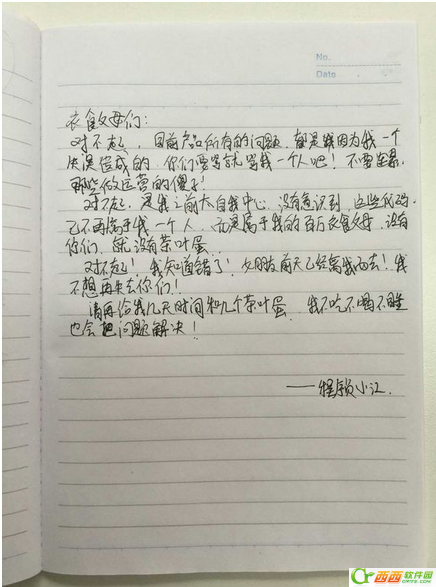 No.
Date
衣食父母们：
对不起，目前产品所有的问题，都是我因为我一个
失误造成的，你们要骂就骂我一个人吧！不要连累
那些做运营的傻子！
对不起，是我之前太自我中心，没有意识到，这些代码
已不再属于我一个人，而是属于我的百万衣食父母，没有
你们，就没有茶叶蛋。
对不起！我知道错了！女朋友前天已经离我而去！我
不想再失去你们！
请再给我几天时间和几个茶叶蛋，我不吃不喝不睡
也会把问题解决！
——程序员小江.
西西软件园
CR173.COM